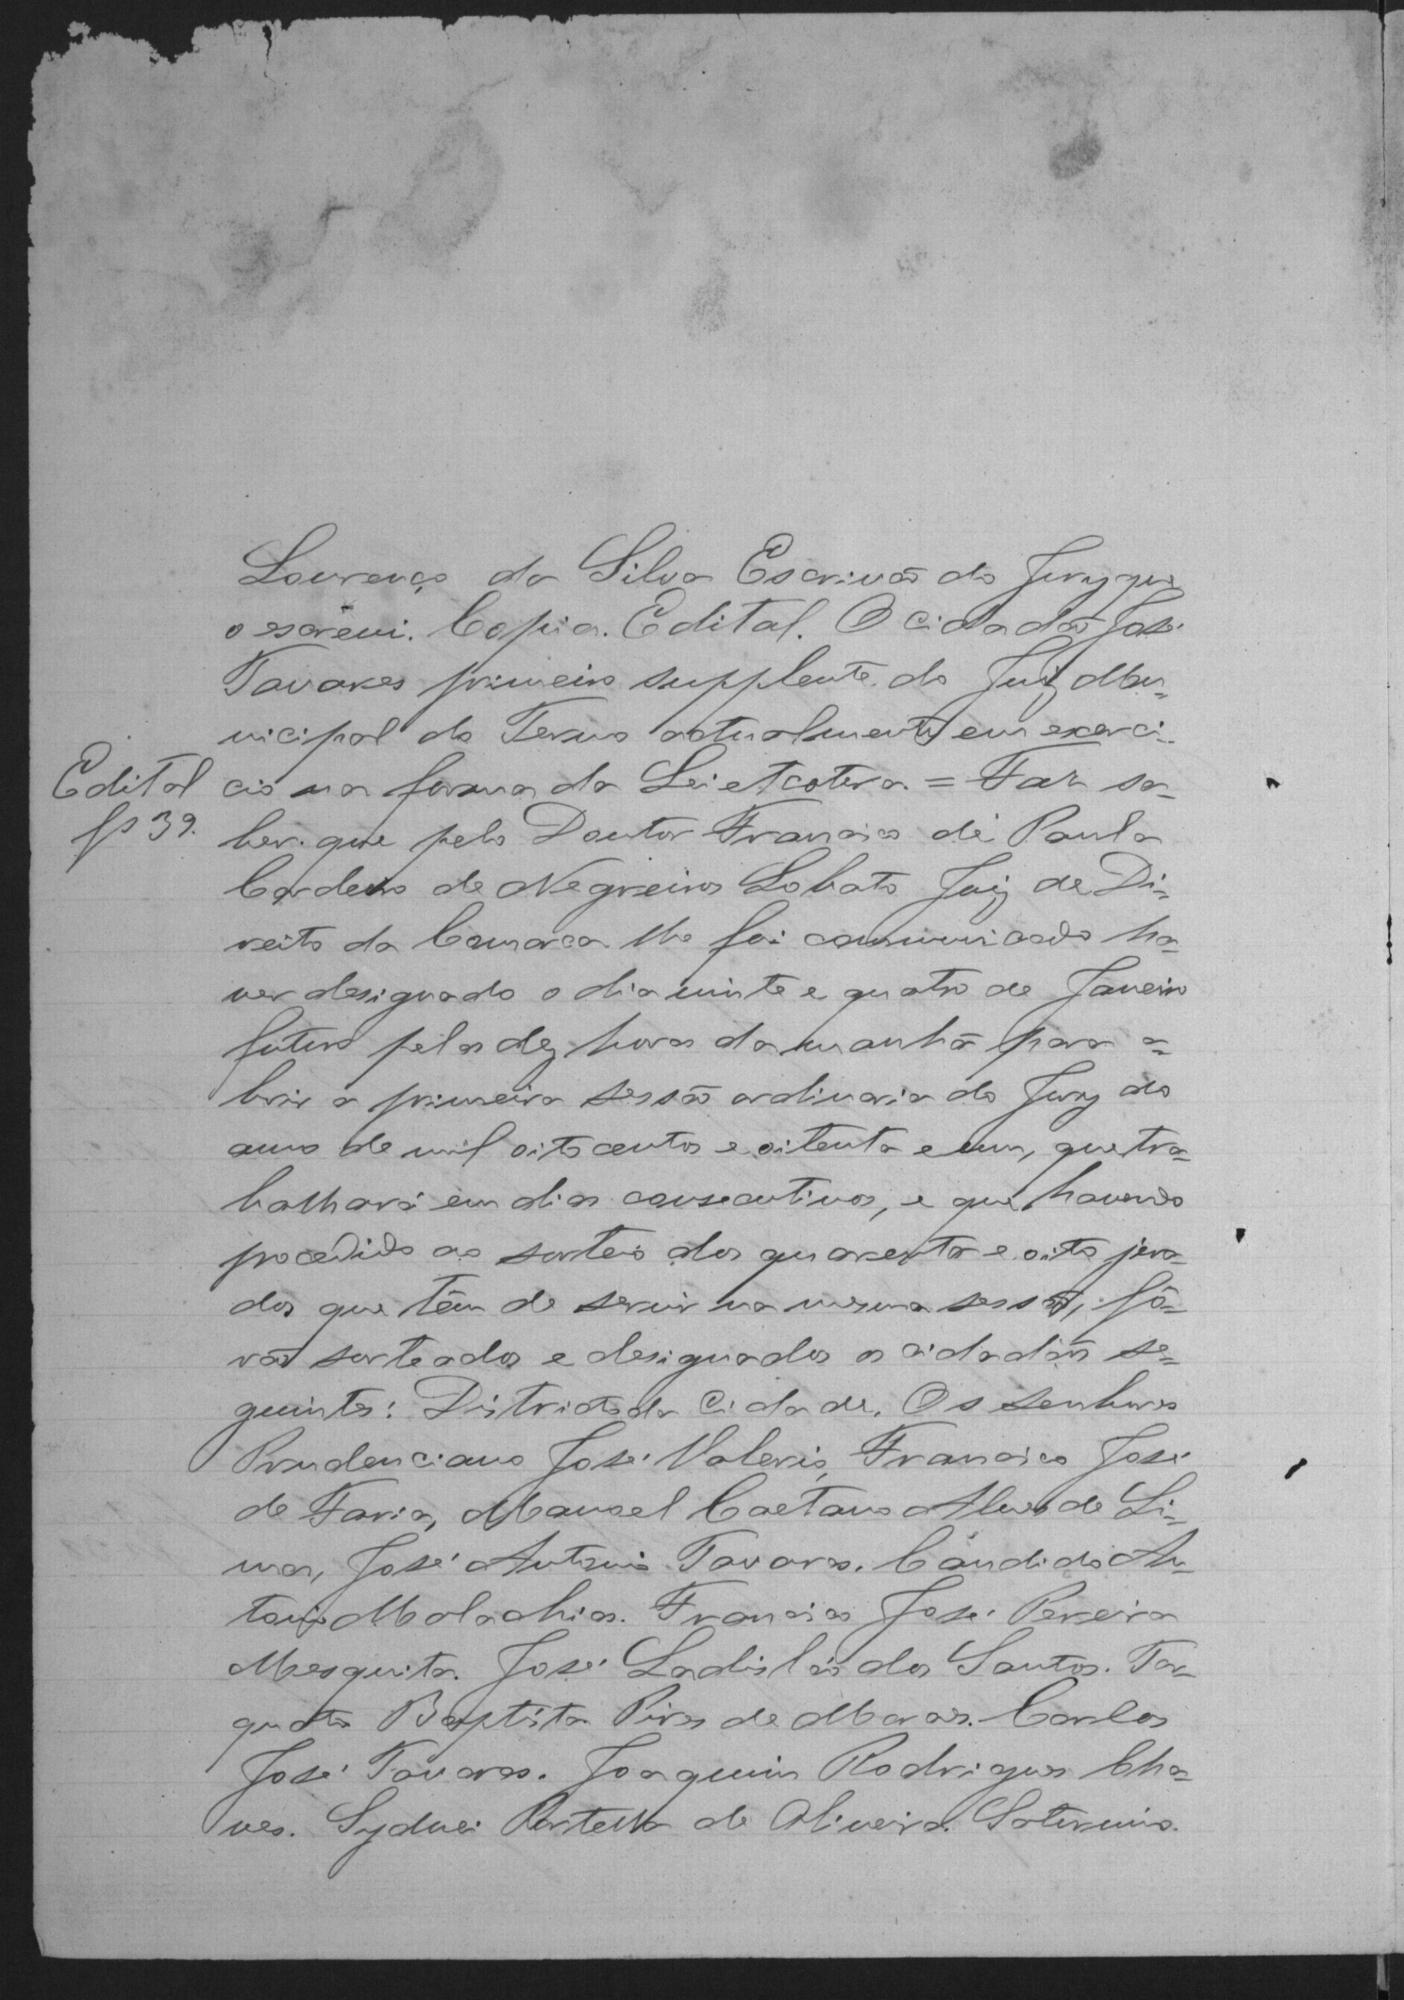 Lourenço da Silva Escrivão do Jury que
o escrevi. Copia. Edital. O cidadão José
Tavares primeiro supplente do Juiz Mu-
nicipal do Termo actualmente em exerci-
Edital
fs 39.
cio na forma da Lei etcetera = Faz sa-
ber que pelo Doutor Francisco de Paula
Cordeiro de Negreiros Lobato Juiz de Di-
reito da Comarca lhe foi communicado ha-
ver designado o dia vinte e quatro de Janeiro
futuro pelas dez horas da manhã para a-
brir a primeira sessão ordinaria do Jury do
anno de mil oitocentos e oitenta e um, que tra-
balhará em dias consecutivos, e que havendo
procedido ao sorteio dos quarenta e oito jura-
dos que têm de servir na mesma sessão, fô-
rão sorteados e designados os cidadãos se-
guintes: Districto da Cidade. Os senhores
Prudenciano José Valerio, Francisco José
de Faria, Manoel Caetano Alves de Li-
ma, José Antonio Tavares. Cândido An-
tonio Malachias. Francisco José Pereira
Mesquita. José Ladisláo dos Santos. Tor-
quato Baptista Pires de Moraes. Carlos
José Tavares. Joaquim Rodrigues Cha-
ves. Sydnei Portella de Oliveira. Saturnino.